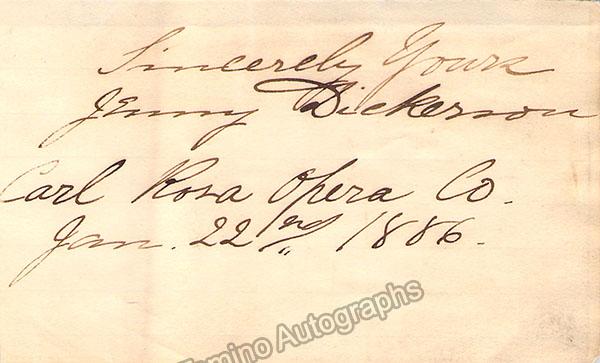 Sincerely Yours
Jenny Dickerson
Carl Rosa Opera Co.
Jan. 22nd, 1886.
Tamino Autographs